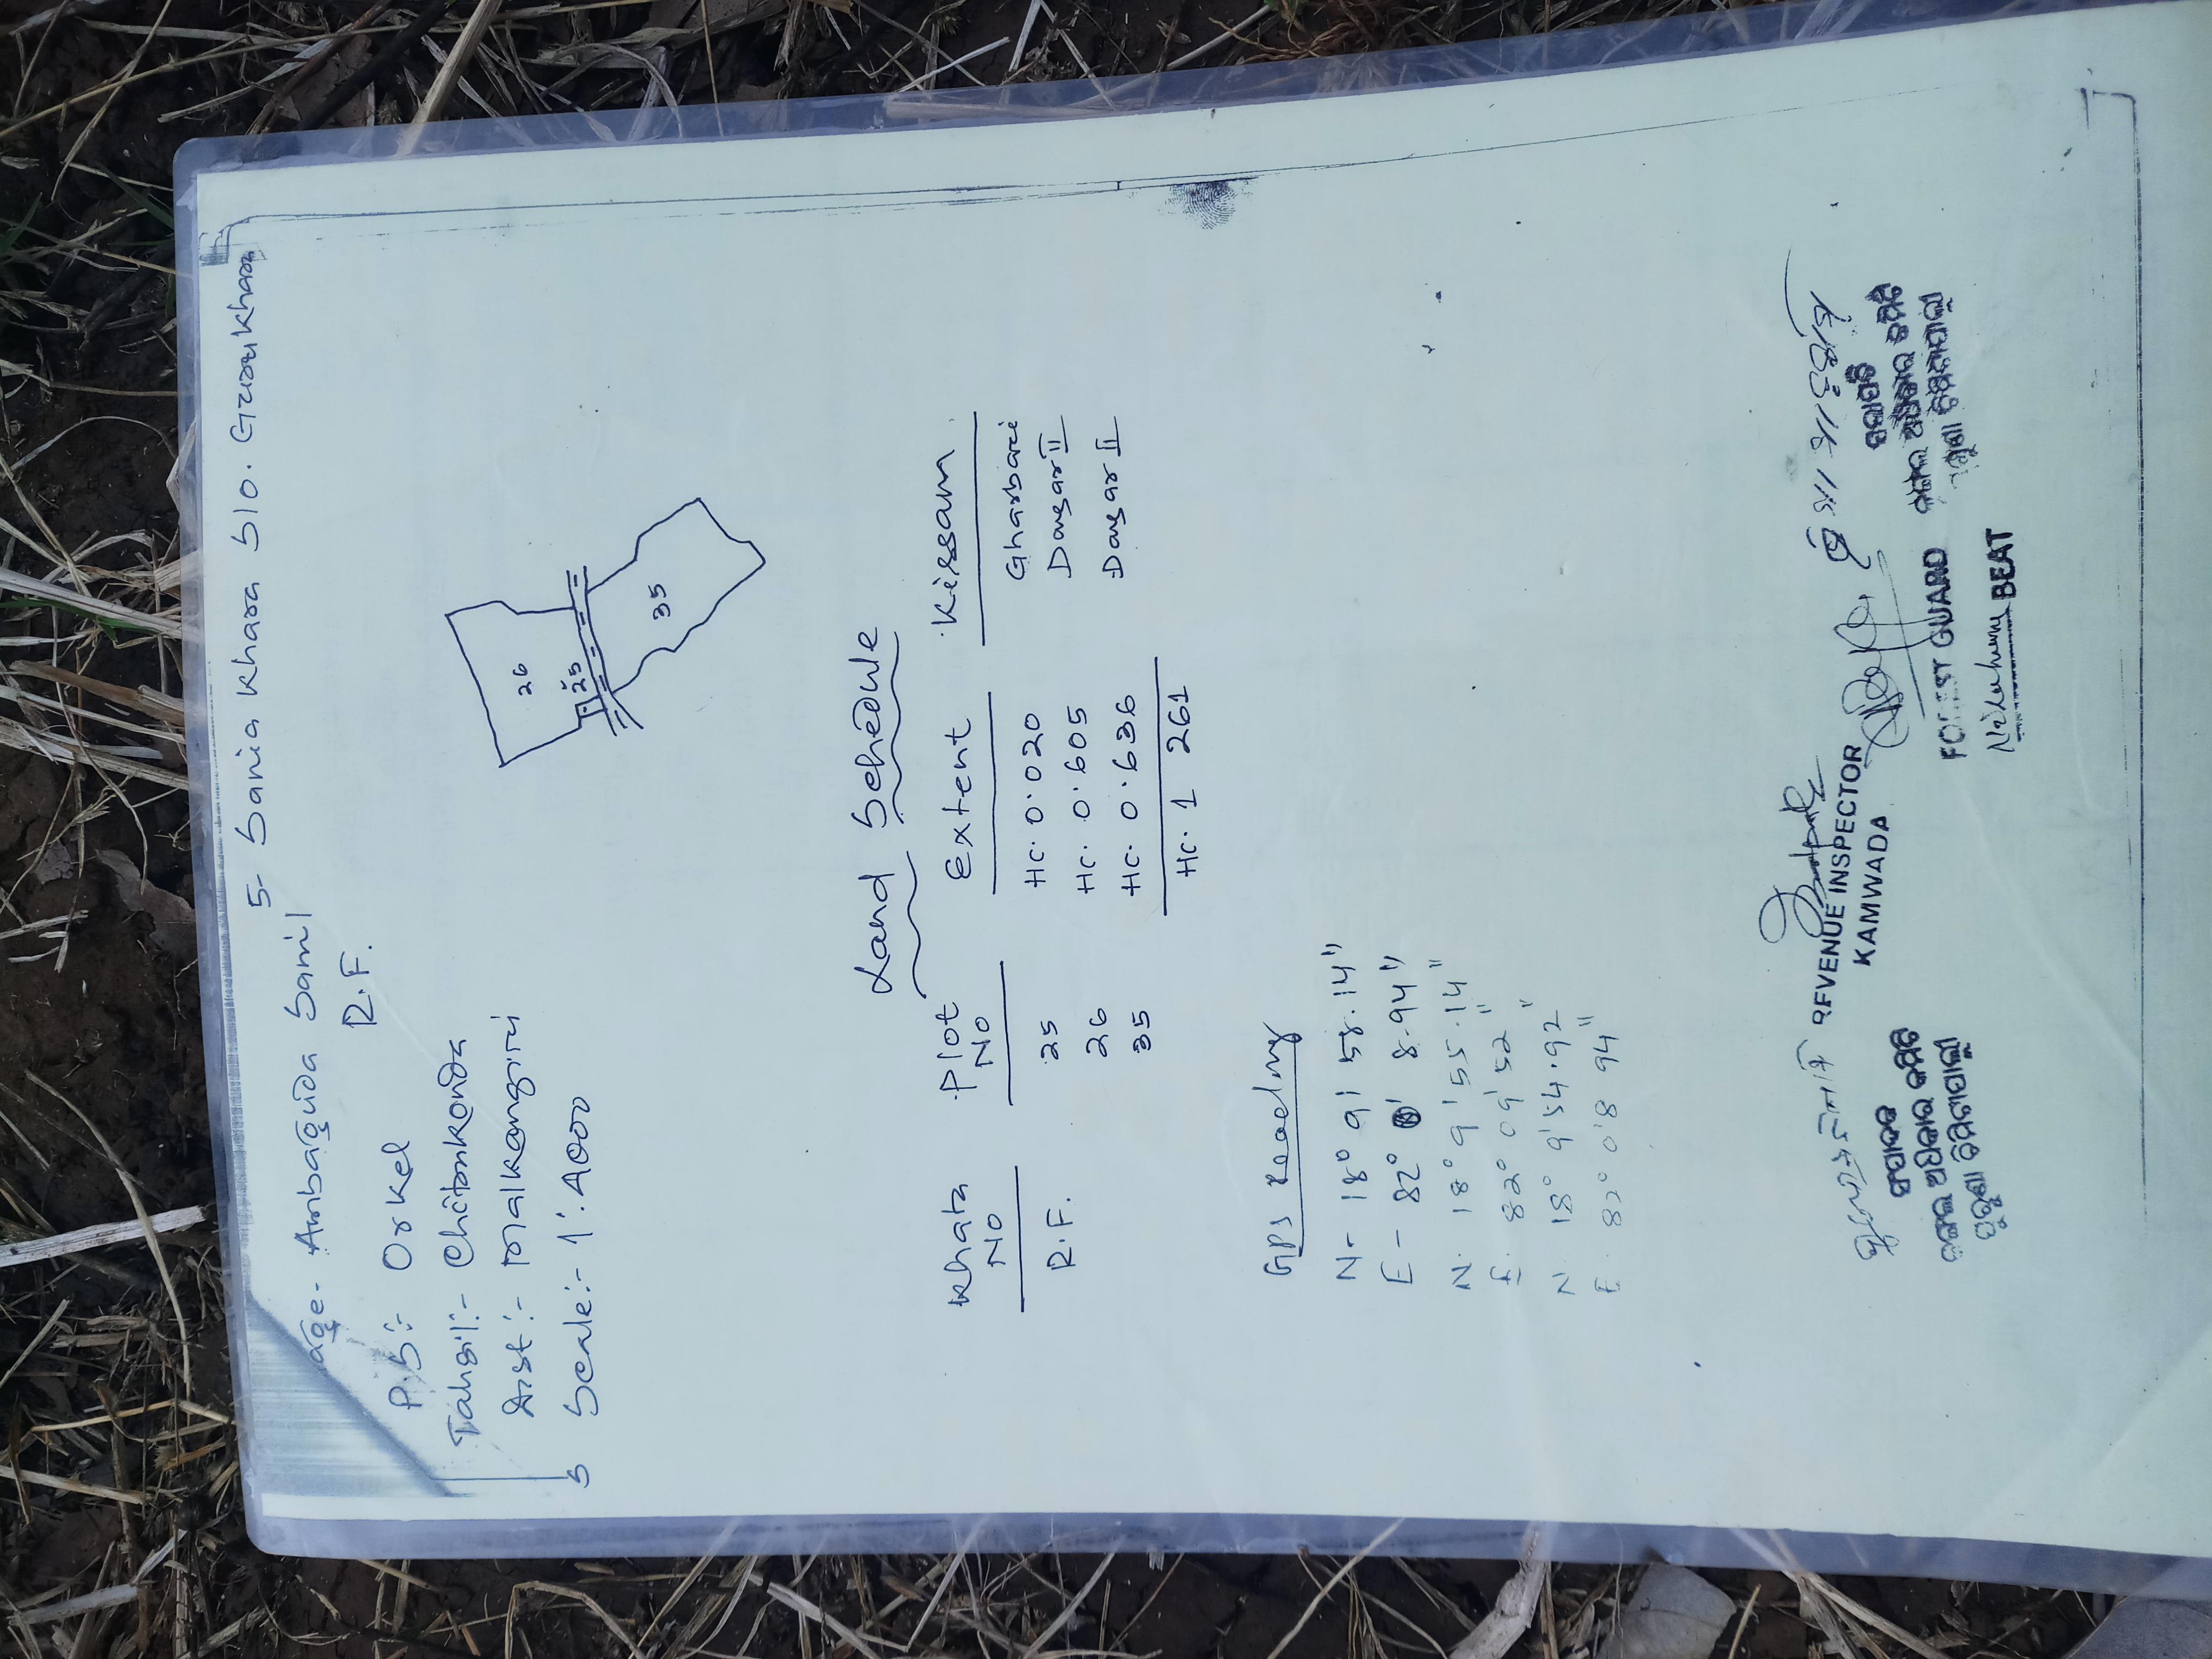 5- Sania Khara S/O. Gurukhara
age- Ambaguda Samil
R.F.
P.S:- Orkel
Tahsil:- Chitrakonda
Dist:- Malkangiri
Scale:- 1":4000
26
25
35
Land Schedule
Khata No Plot No Extent Kissam
R.F. 25 Hc. 0.020 Gharbari
26 Hc. 0.605 Dongar II
35 Hc. 0.636 Dongar II
Hc. 1 261
GPS Reading
N- 18° 9' 58.14"
E- 82° 0' 8.94"
N. 18° 9' 55.14"
E. 82° 09' 52"
N 18° 9' 54.92"
E. 82° 0'8 94"
REVENUE INSPECTOR
KAMWADA
FOREST GUARD
BEAT
ସମ୍ପାଦକ
ଜଙ୍ଗଲ ଅଧିକାର କମିଟି
ସଭାପତି
ଜଙ୍ଗଲ ଅଧିକାର କମିଟି